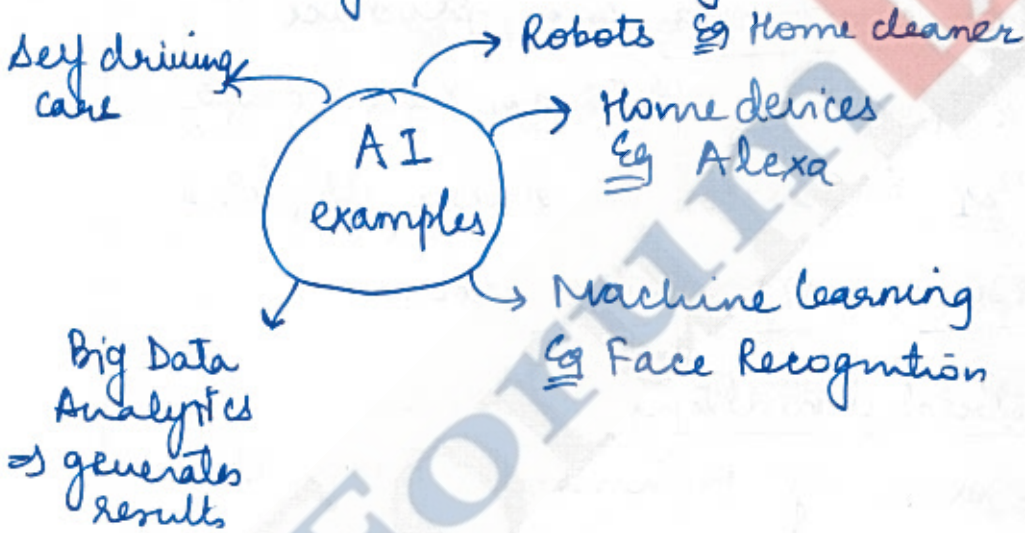 Self driving
care
Robots Eg Home cleaner
Home devices
Eg Alexa
AI
examples
Machine learning
Eg Face Recognition
Big Data
Analytics
⇒ generates
results
Forum